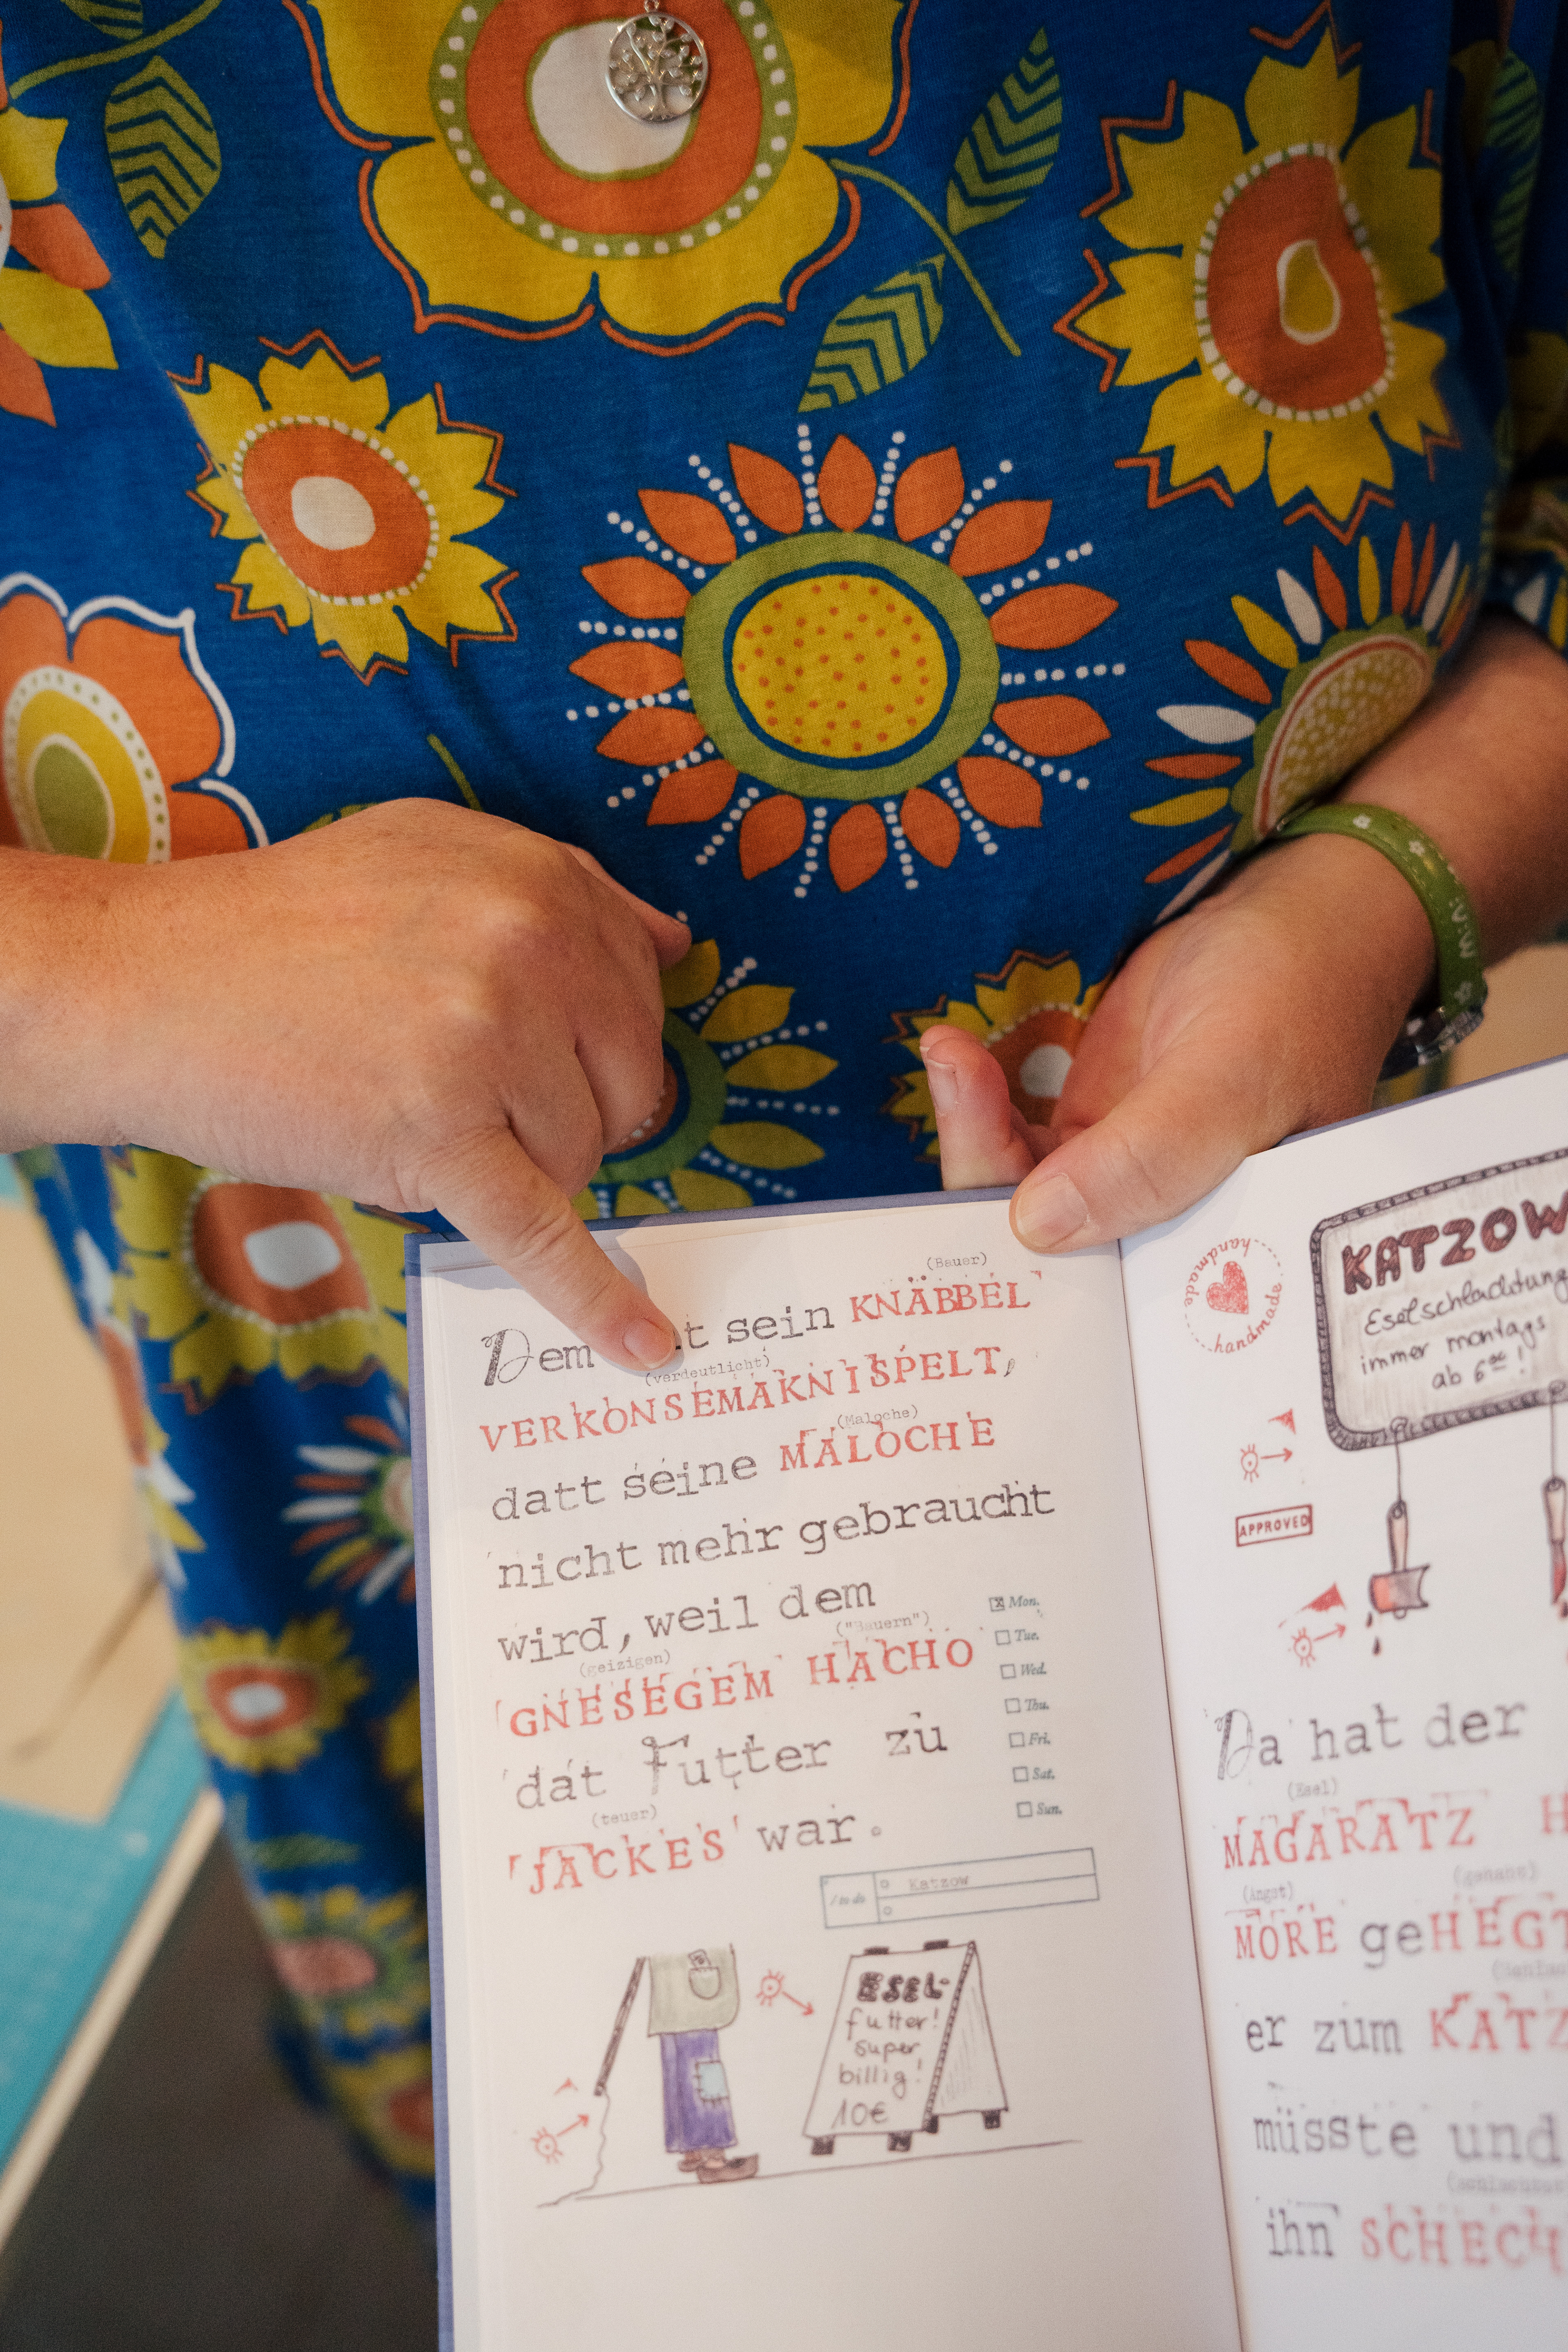 (Bauer)
Dem sein KNÄBBEL
(verdeutlicht)
VERKONSEMAKNISPELT,
(Maloche)
datt seine MALOCHE
nicht mehr gebraucht
wird, weil dem
(geizigen) ("Bauern")
GNESEGEM HACHO
dat Futter zu
(teuer)
JACKES war.
Mon.
Tue.
Wed.
Thu.
Fri.
Sat.
Sun.
to do Katzow
ESEL-
futter!
super
billig!
10€
handmade handmade
KATZOW
Eselschlachtung
immer montags
ab 6⁰⁰!
APPROVED
Da hat der
(Esel)
MAGARATZ
(Angst) (gehabt)
MORE geHEGT
er zum KATZ
müsste und
ihn SCHECH
mini